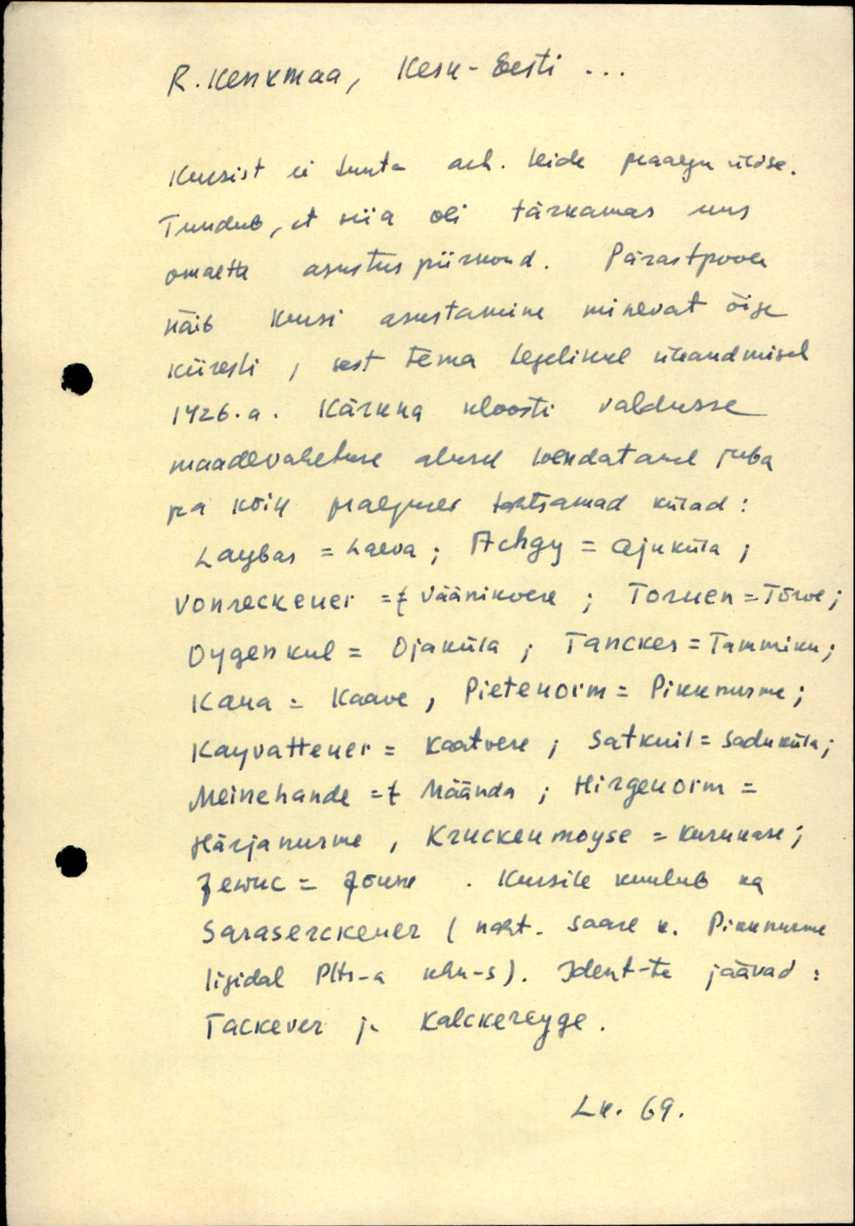 R. Kenkmaa, Kesk-Eesti ...
Kursist ei tunta arh. leide praegu üldse.
Tundub, et siia oli tärkamas uus
omaette asustuspiirkond. Pärastpoole
näib Kursi asustamine minevat õige
kiiresti, sest tema tegelikul üleandmisel
1426.a. Kärkna kloostri valdusse
maadevahetuse alusel loendatavad juba
pea kõik praegused tähtsamad külad:
Laybas = Laeva; Achgy = Ajuküla;
Vonreckever = ? Väänikvere; Torven = Tõrve;
Oygenkul = Ojaküla; Tanckes = Tammiku;
Kava = Kaave, Pietenorm = Pikknurme;
Kayvattever = Kaatvere; Satkuil = Saduküla;
Meinehande = ? Mäända; Hirgenorm =
Härjanurme, Kruckenmoyse = Kurukase;
Jewuc = Jõune. Kursile kuulub ka
Saraserckever (naht. Saare k. Pikknurme
ligidal Plts-a khk-s). Ident-ta jäävad:
Tackever ja Kalckereyge.
Lk. 69.